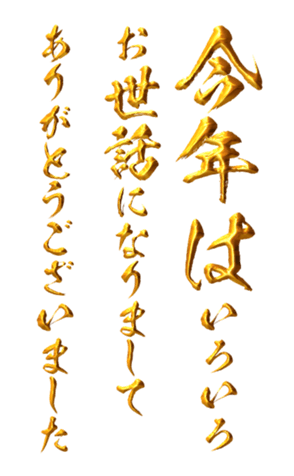 今年はいろいろ
お世話になりまして
ありがとうございました